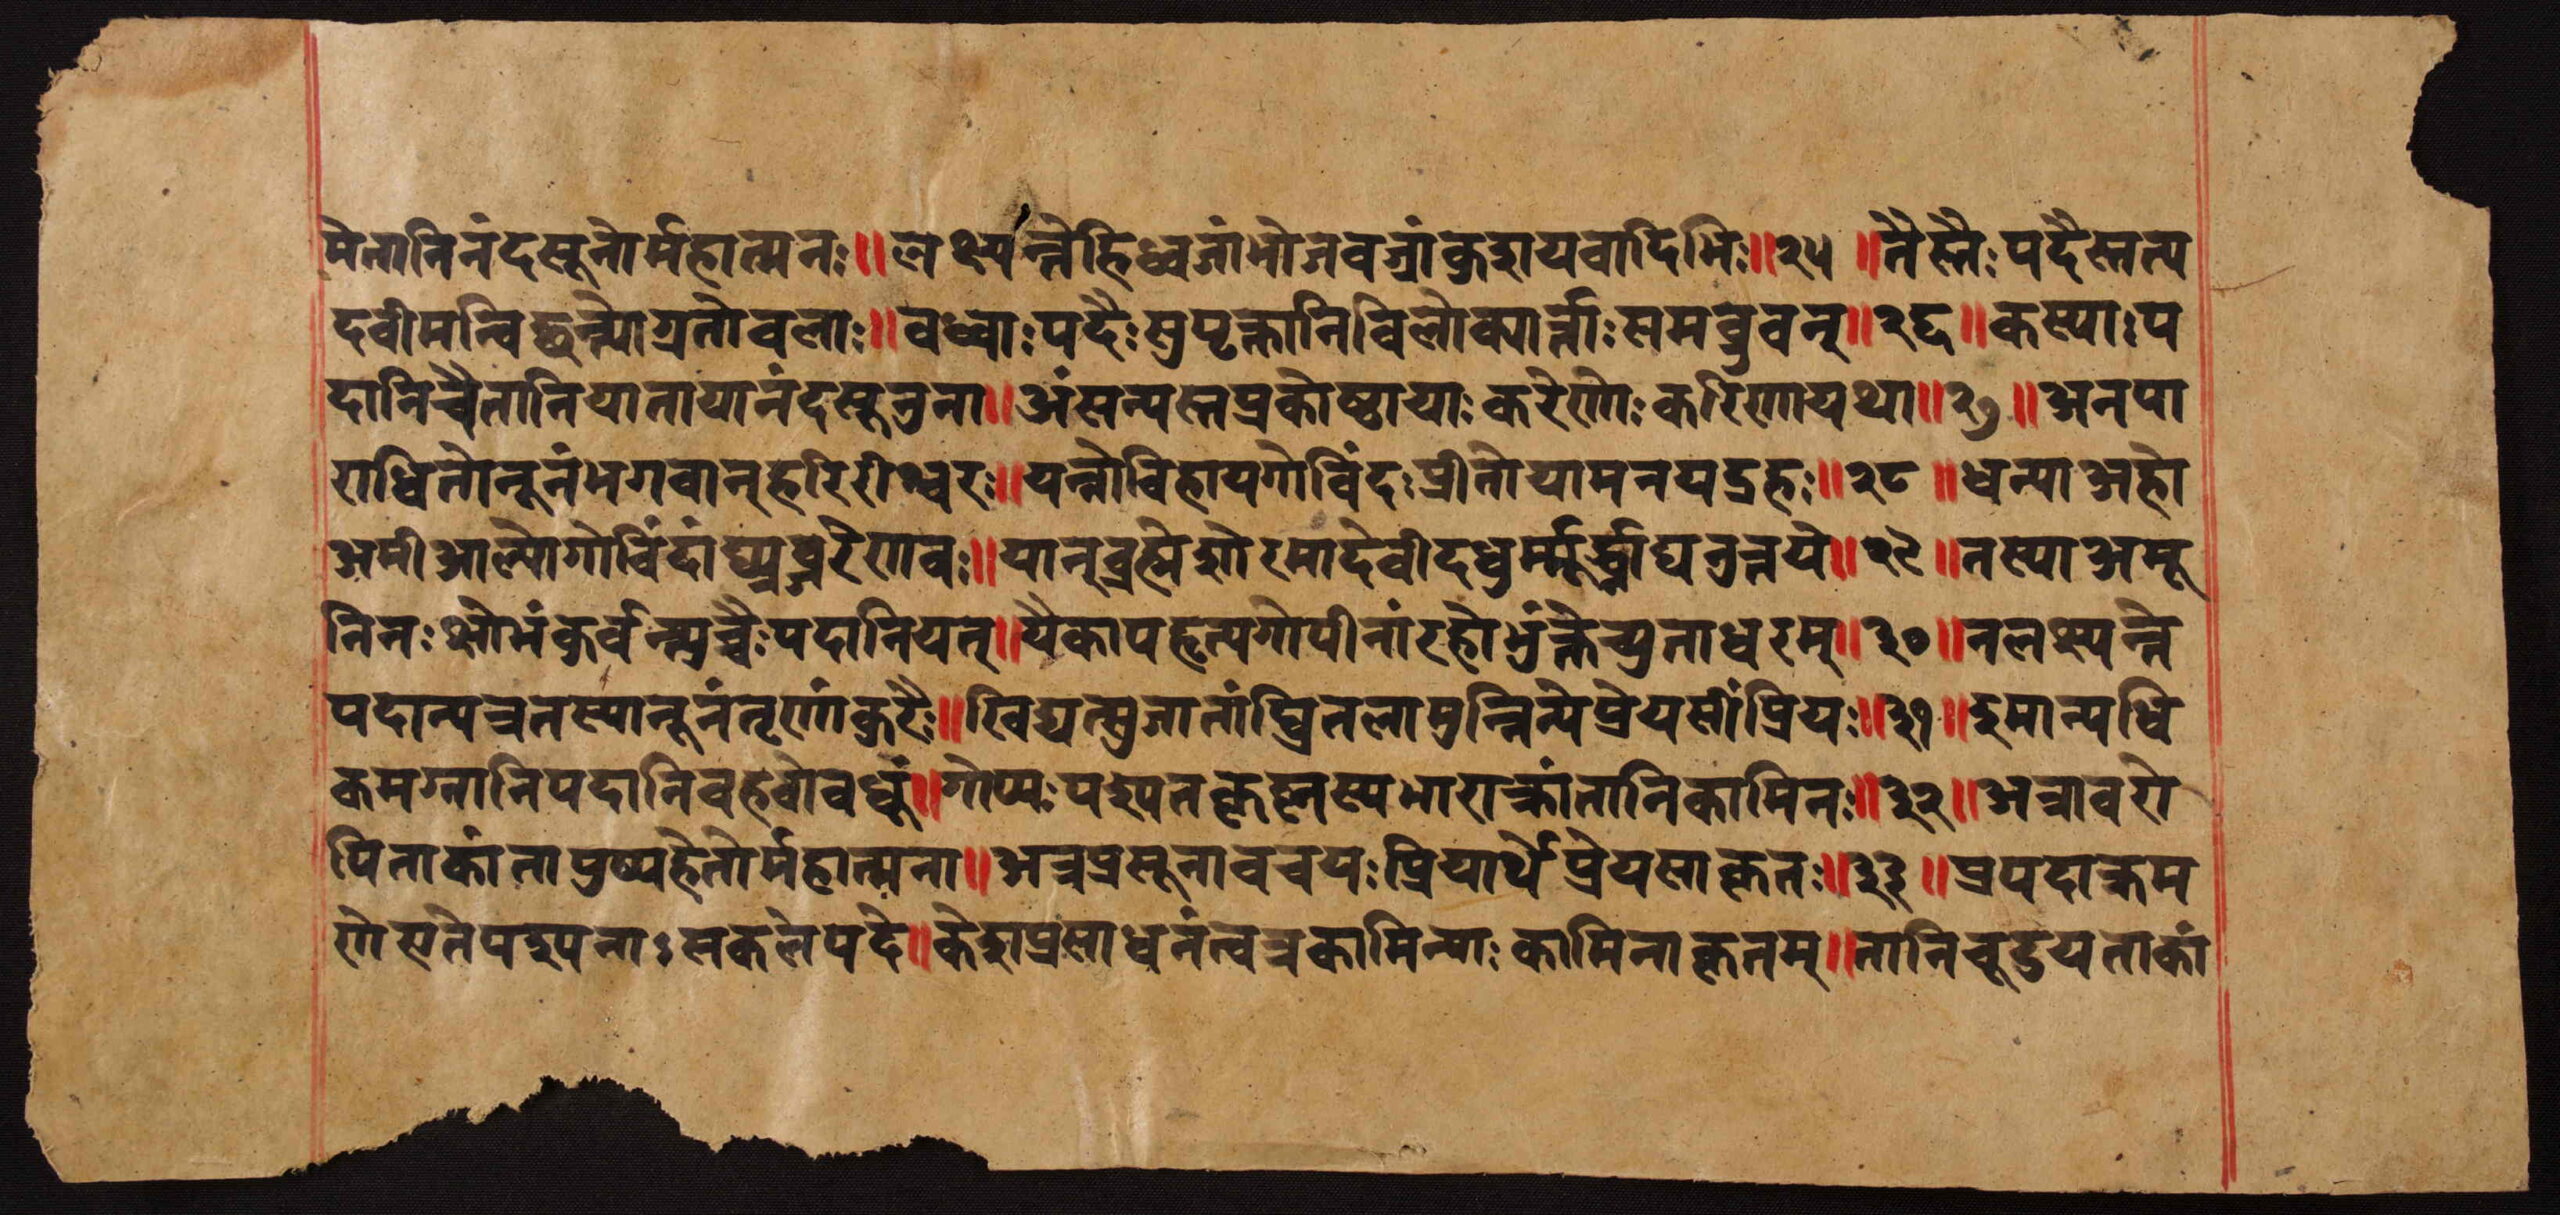 मेतानिनंदसूनोर्महात्मनः॥लक्ष्यन्तेहिध्वजांभोजवज्रांकुशयवादिभिः॥२५॥तैस्तैःपदैस्तत्प
दवीमन्विछन्त्योग्रतोवलाः॥वध्वाःपदैःसुपृक्तानिविलोक्यार्त्ताःसमब्रुवन्॥२६॥कस्याःप
दानिचैतानियातायानंदसूनुना॥अंसन्यस्तप्रकोष्ठायाःकरेणोःकरिणायथा॥२७॥अनया
राधितोनूनंभगवान्हरिरीश्वरः॥यन्नोविहायगोविंदःप्रीतोयामनयद्रहः॥२८॥धन्याअहो
अमीआल्योगोविंदांघ्र्यब्जरेणवः॥यान्ब्रह्मेशोरमादेवीदधुर्मूर्द्ध्न्यघनुत्तये॥२९॥तस्याअमू
निनःक्षोभंकुर्वन्त्युच्चैःपदानियत्॥यैकापहृत्यगोपीनांरहोभुंक्तेच्युताधरम्॥३०॥नलक्ष्यन्ते
पदान्यत्रतस्यानूनंतृणांकुरैः॥खिद्यत्सुजातांघ्रितलामुन्निन्येप्रेयसींप्रियः॥३१॥इमान्यधि
कमग्नानिपदानिवहतोवधूं॥गोप्यःपश्यतकृष्णस्यभाराक्रांतानिकामिनः॥३२॥अत्रावरो
पिताकांतापुष्पहेतोर्महात्मना॥अत्रप्रसूनावचयःप्रियार्थेप्रेयसाकृतः॥३३॥प्रपदाक्रम
णेएतेपश्यताःसकलेपदे॥केशप्रसाधनंत्वत्रकामिन्याःकामिनाकृतम्॥तानिचूडयताकां